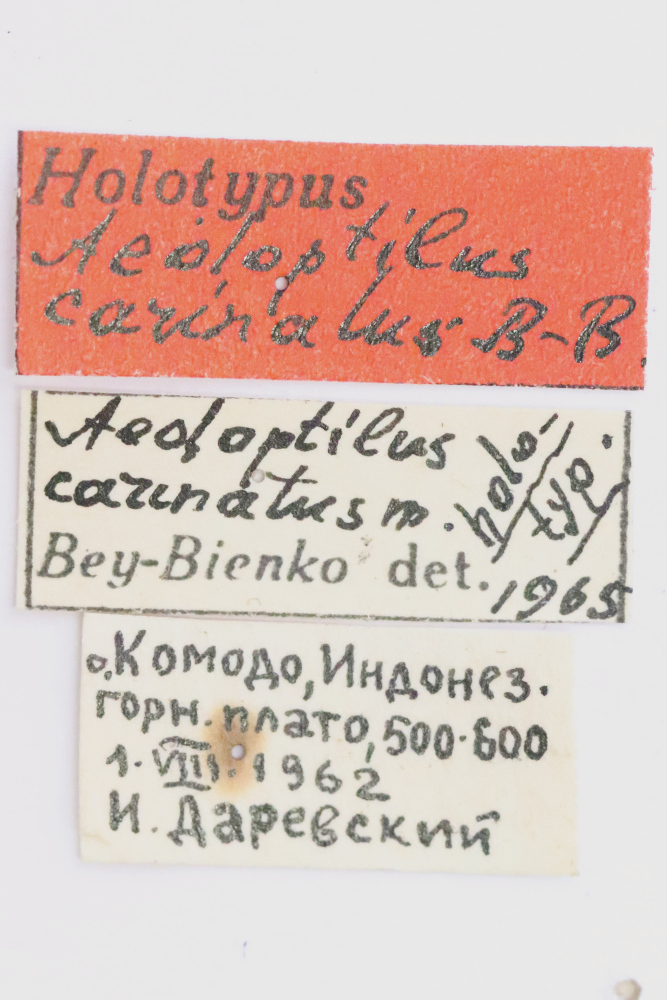 Holotypus
Aeoloptilus
carinatus B-B.
Aeoloptilus
carinatus m. holo-
typ.
Bey-Bienko det. 1965
о. Комодо, Индонез.
горн. плато, 500-600
1. VIII. 1962
И. Даревский